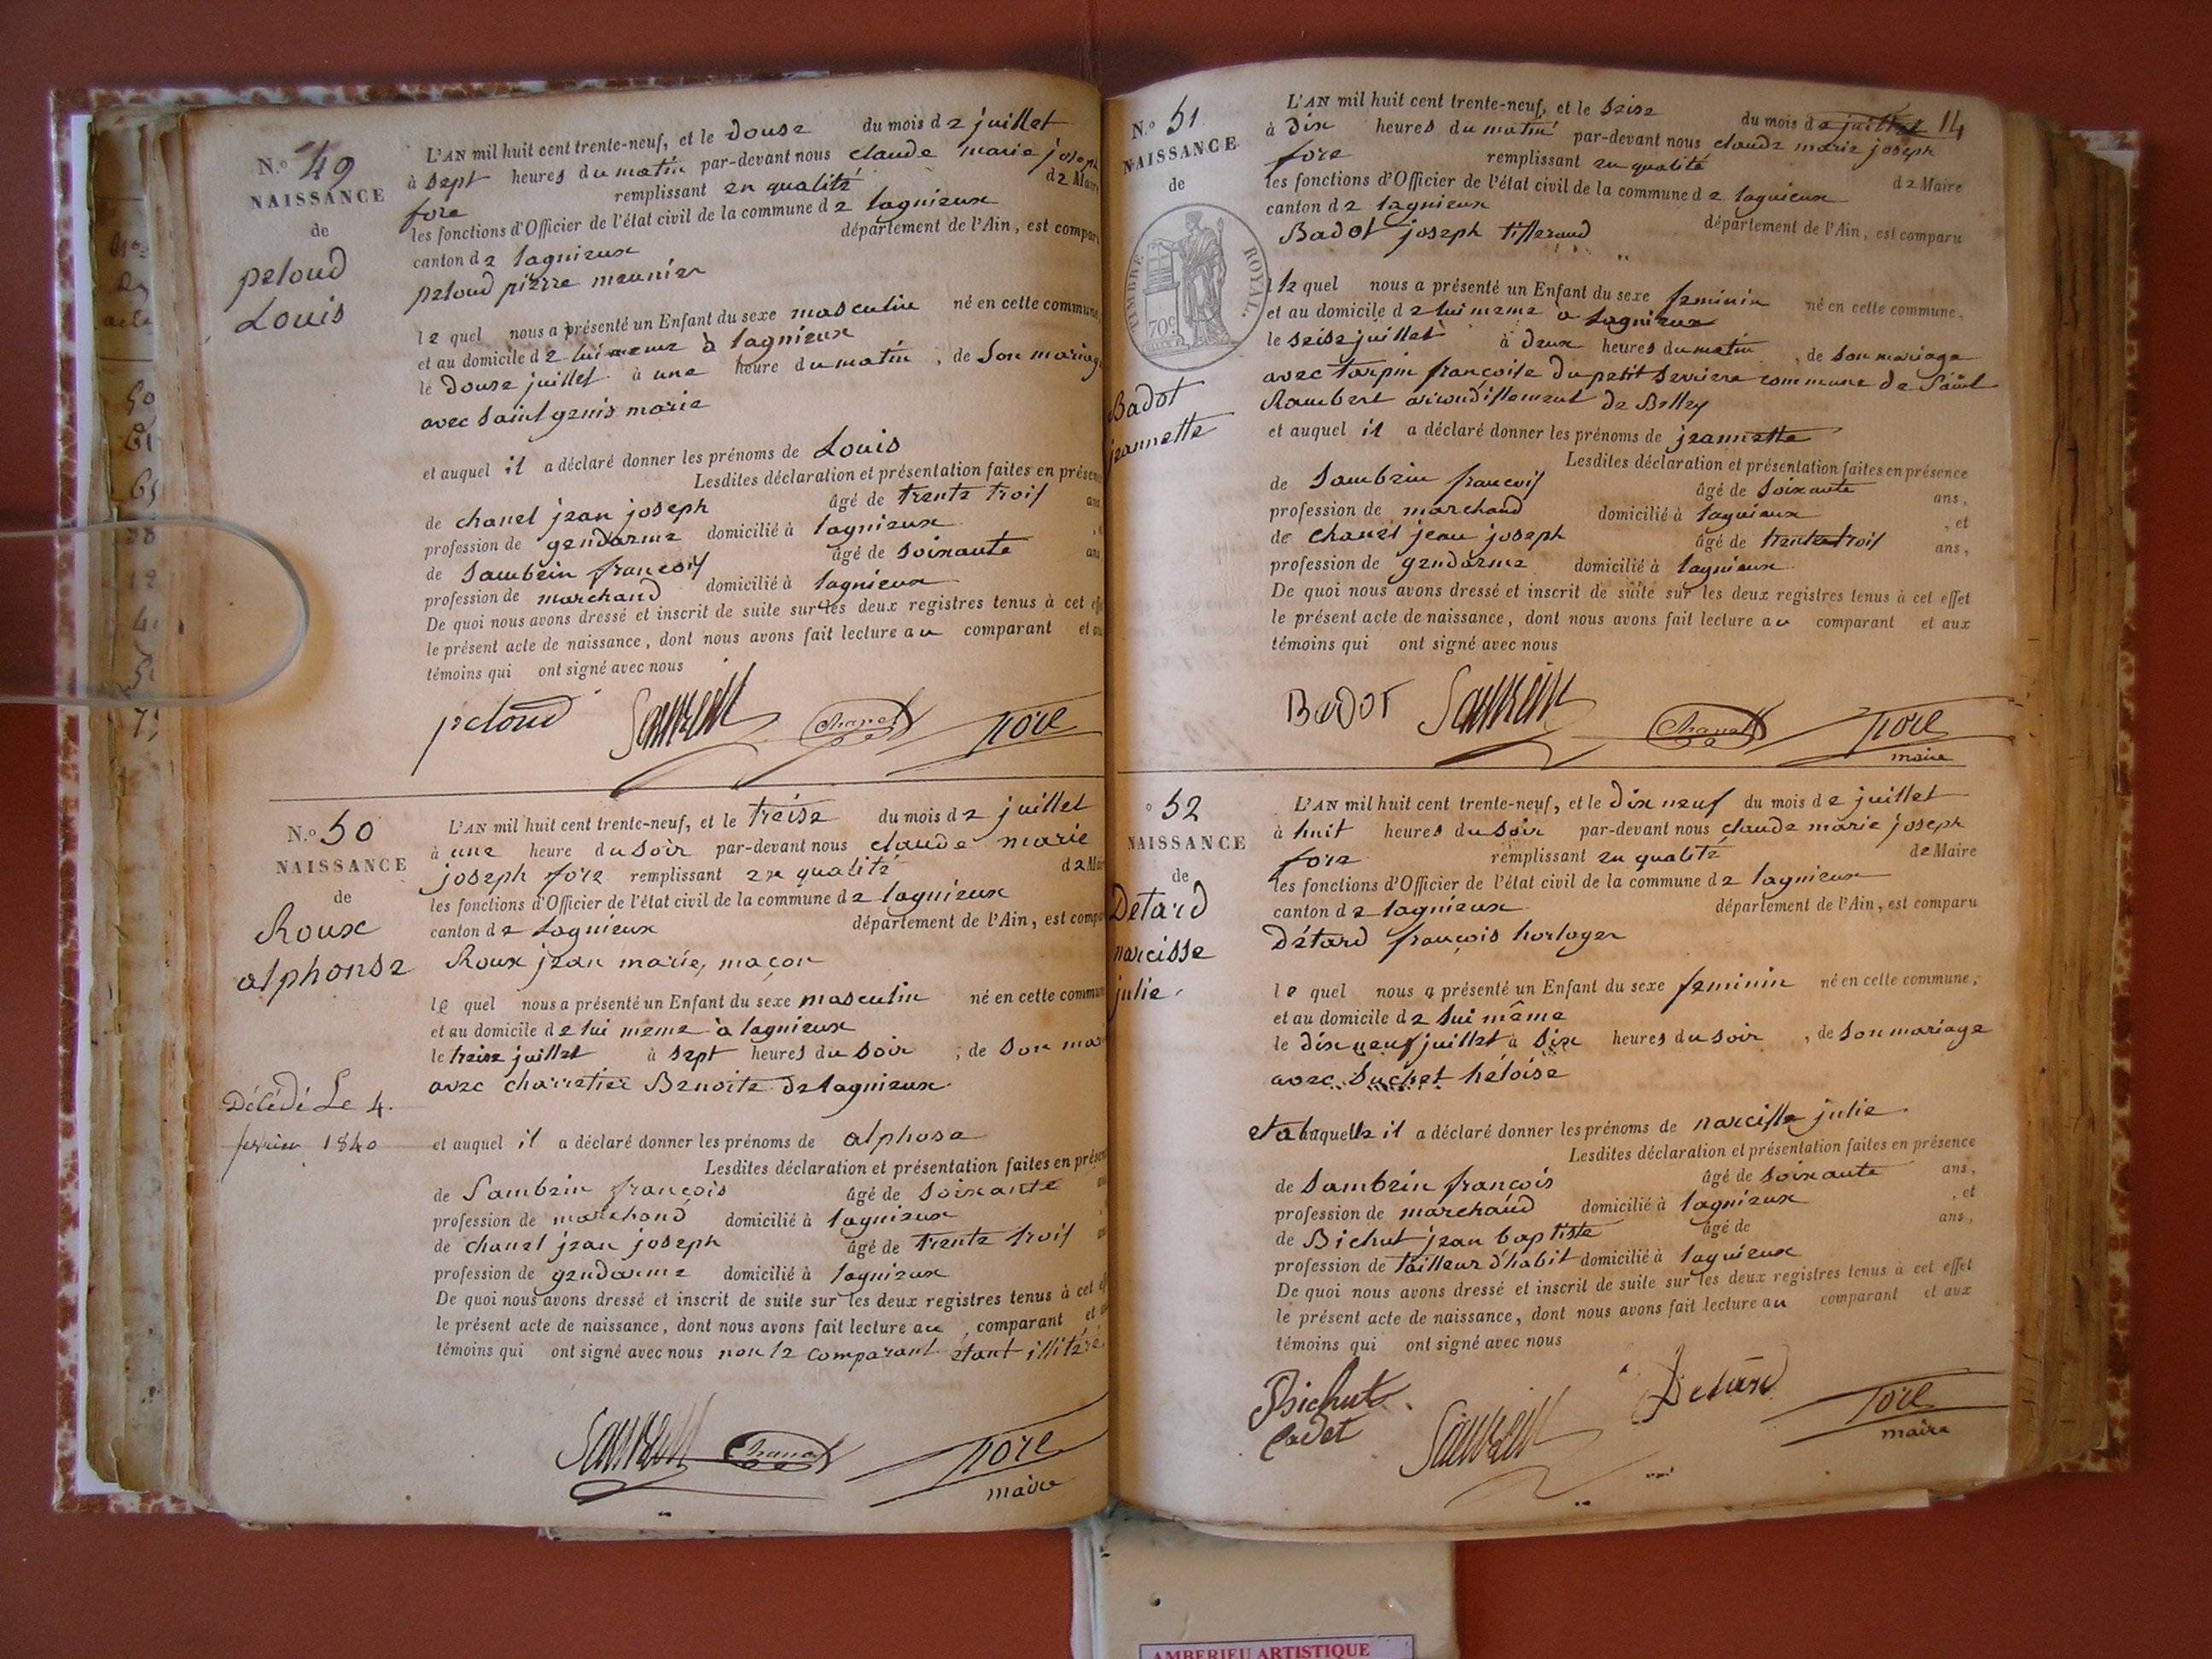 N.o 49
NAISSANCE
de
peloud
Louis
L'AN mil huit cent trente-neuf, et le douse du mois de juillet
à sept heures du matin par-devant nous claude marie joseph
fore remplissant en qualité de Maire
les fonctions d'Officier de l'état civil de la commune de lagnieux
canton de lagnieux département de l'Ain, est compar
peloud pierre meunier
le quel nous a présenté un Enfant du sexe masculin né en cette commune,
et au domicile de lui meme à lagnieux
le douse juillet à une heure du matin, de son mariag
avec saint genis marie
et auquel il a déclaré donner les prénoms de Louis
Lesdites déclaration et présentation faites en présen
de chanel jean joseph âgé de trente trois ans
profession de gendarme domicilié à lagnieux
de sambein francois âgé de soixante ans
profession de marchand domicilié à lagnieux
De quoi nous avons dressé et inscrit de suite sur les deux registres tenus à cet eff
le présent acte de naissance, dont nous avons fait lecture au comparant et au
témoins qui ont signé avec nous
peloud Chanel fore
N.o 50
NAISSANCE
de
Roux
alphonse
Décédé Le 4.
fevrier 1840
L'AN mil huit cent trente-neuf, et le treise du mois de juillet
à une heure du soir par-devant nous claude marie
joseph fore remplissant en qualité de Mair
les fonctions d'Officier de l'état civil de la commune de lagnieux
canton de Lagnieux département de l'Ain, est compa
Roux jean marie, maçon
le quel nous a présenté un Enfant du sexe masculin né en cette commun
et au domicile de lui meme à lagnieux
le treise juillet à sept heures du soir, de son mar
avec charretier Benoite de lagnieux
et auquel il a déclaré donner les prénoms de alphose
Lesdites déclaration et présentation faites en présen
de Sambein françois âgé de soixante
profession de marchand domicilié à lagnieux
de chanel jean joseph âgé de trente trois
profession de gendarme domicilié à lagnieux
De quoi nous avons dressé et inscrit de suite sur les deux registres tenus à cet eff
le présent acte de naissance, dont nous avons fait lecture au comparant et
témoins qui ont signé avec nous non le comparant étant illitéré
Chanel fore
maire
14
N.o 51
NAISSANCE
de
TIMBRE ROYAL.
70c
Badot
jeannette
L'AN mil huit cent trente-neuf, et le seise du mois de juillet
à dix heures du matin par-devant nous claude marie joseph
fore remplissant en qualité de Maire
les fonctions d'Officier de l'état civil de la commune de lagnieux
canton de lagnieux département de l'Ain, est comparu
Badot joseph tisserand
le quel nous a présenté un Enfant du sexe feminin né en cette commune,
et au domicile de lui meme à Lagnieux
le seise juillet à deux heures du matin, de son mariage
avec tarpin françoise du petit serriere commune de Saint
Rambert arrondissement de Belley
et auquel il a déclaré donner les prénoms de jeannette
Lesdites déclaration et présentation faites en présence
de Sambein francois âgé de soixante ans,
profession de marchand domicilié à lagnieux, et
de chanel jean joseph âgé de trente trois ans,
profession de gendarme domicilié à lagnieux
De quoi nous avons dressé et inscrit de suite sur les deux registres tenus à cet effet
le présent acte de naissance, dont nous avons fait lecture au comparant et aux
témoins qui ont signé avec nous
Badot Chanel fore
maire
52
NAISSANCE
de
Detard
narcisse
julie
L'AN mil huit cent trente-neuf, et le dix neuf du mois de juillet
à huit heures du soir par-devant nous claude marie joseph
fore remplissant en qualité de Maire
les fonctions d'Officier de l'état civil de la commune de lagnieux
canton de lagnieux département de l'Ain, est comparu
Détard françois horloger
le quel nous a présenté un Enfant du sexe feminin né en cette commune,
et au domicile de lui même
le dix neuf juillet à six heures du soir, de son mariage
avec Suchet héloise
et a laquelle il a déclaré donner les prénoms de narcisse julie
Lesdites déclaration et présentation faites en présence
de sambein francois âgé de soixante ans,
profession de marchand domicilié à lagnieux, et
de Bichut jean baptiste âgé de ans,
profession de tailleur d'habit domicilié à lagnieux
De quoi nous avons dressé et inscrit de suite sur les deux registres tenus à cet effet
le présent acte de naissance, dont nous avons fait lecture au comparant et aux
témoins qui ont signé avec nous
Bichut
Cadet
Detard fore
maire
AMBERIEU ARTISTIQUE